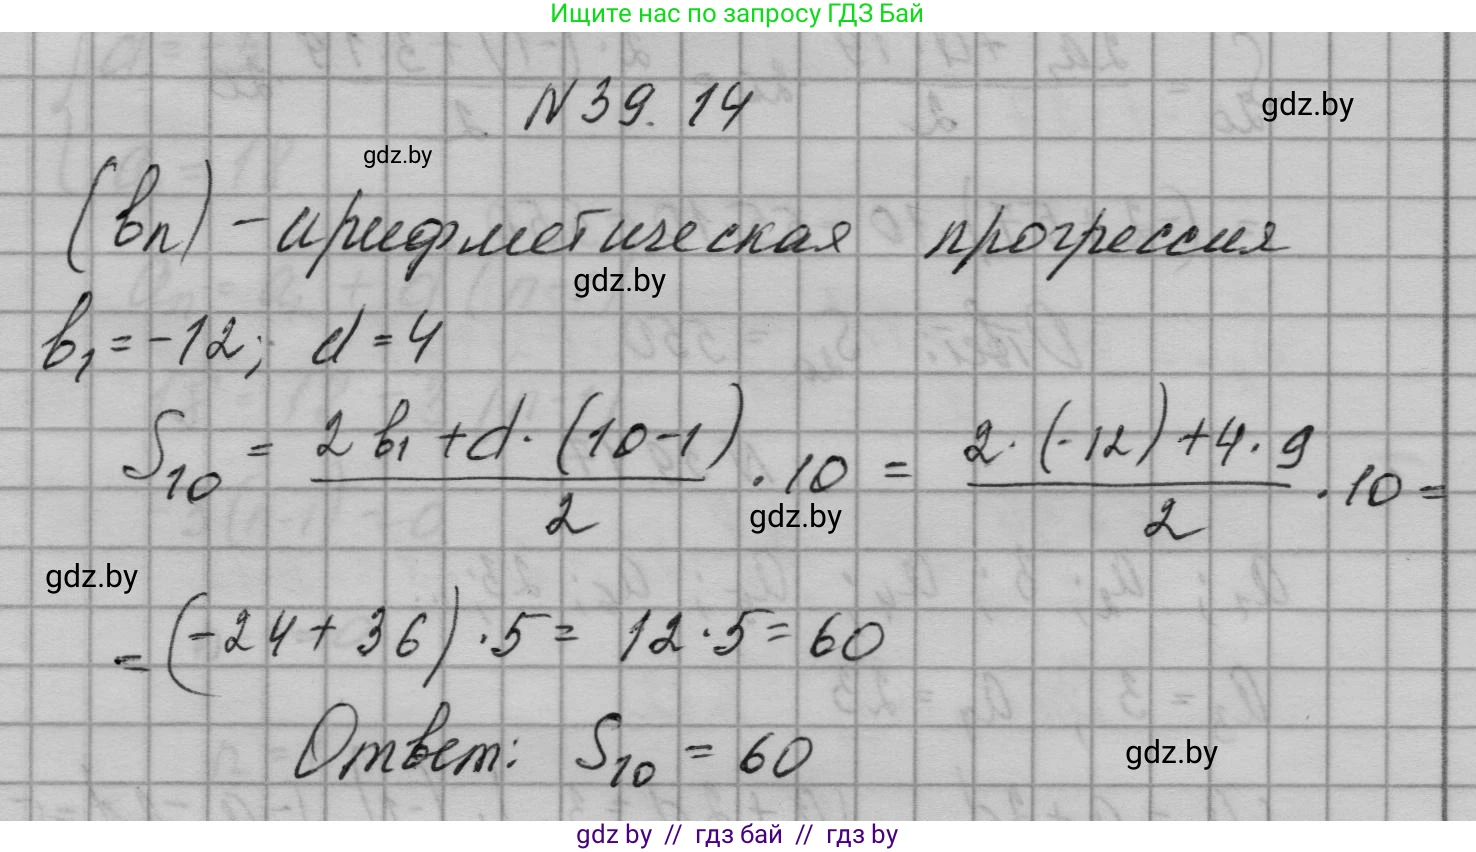 Ищите нас по запросу ГДЗ Бай
N 39. 14
gdz.by
gdz.by
(bn) - арифметическая прогрессия
gdz.by
b1 = -12; d = 4
S10 = (2b1 + d · (10 - 1))/2 · 10 = (2 · (-12) + 4 · 9)/2 · 10 =
gdz.by
gdz.by
= (-24 + 36) · 5 = 12 · 5 = 60
Ответ: S10 = 60
gdz.by
gdz by // гдз бай // гдз by